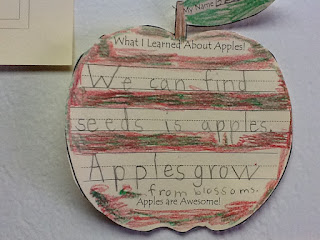 My Name
What I Learned About Apples!
We can find
seeds is apples.
Apples grow
from blossoms.
Apples are Awesome!